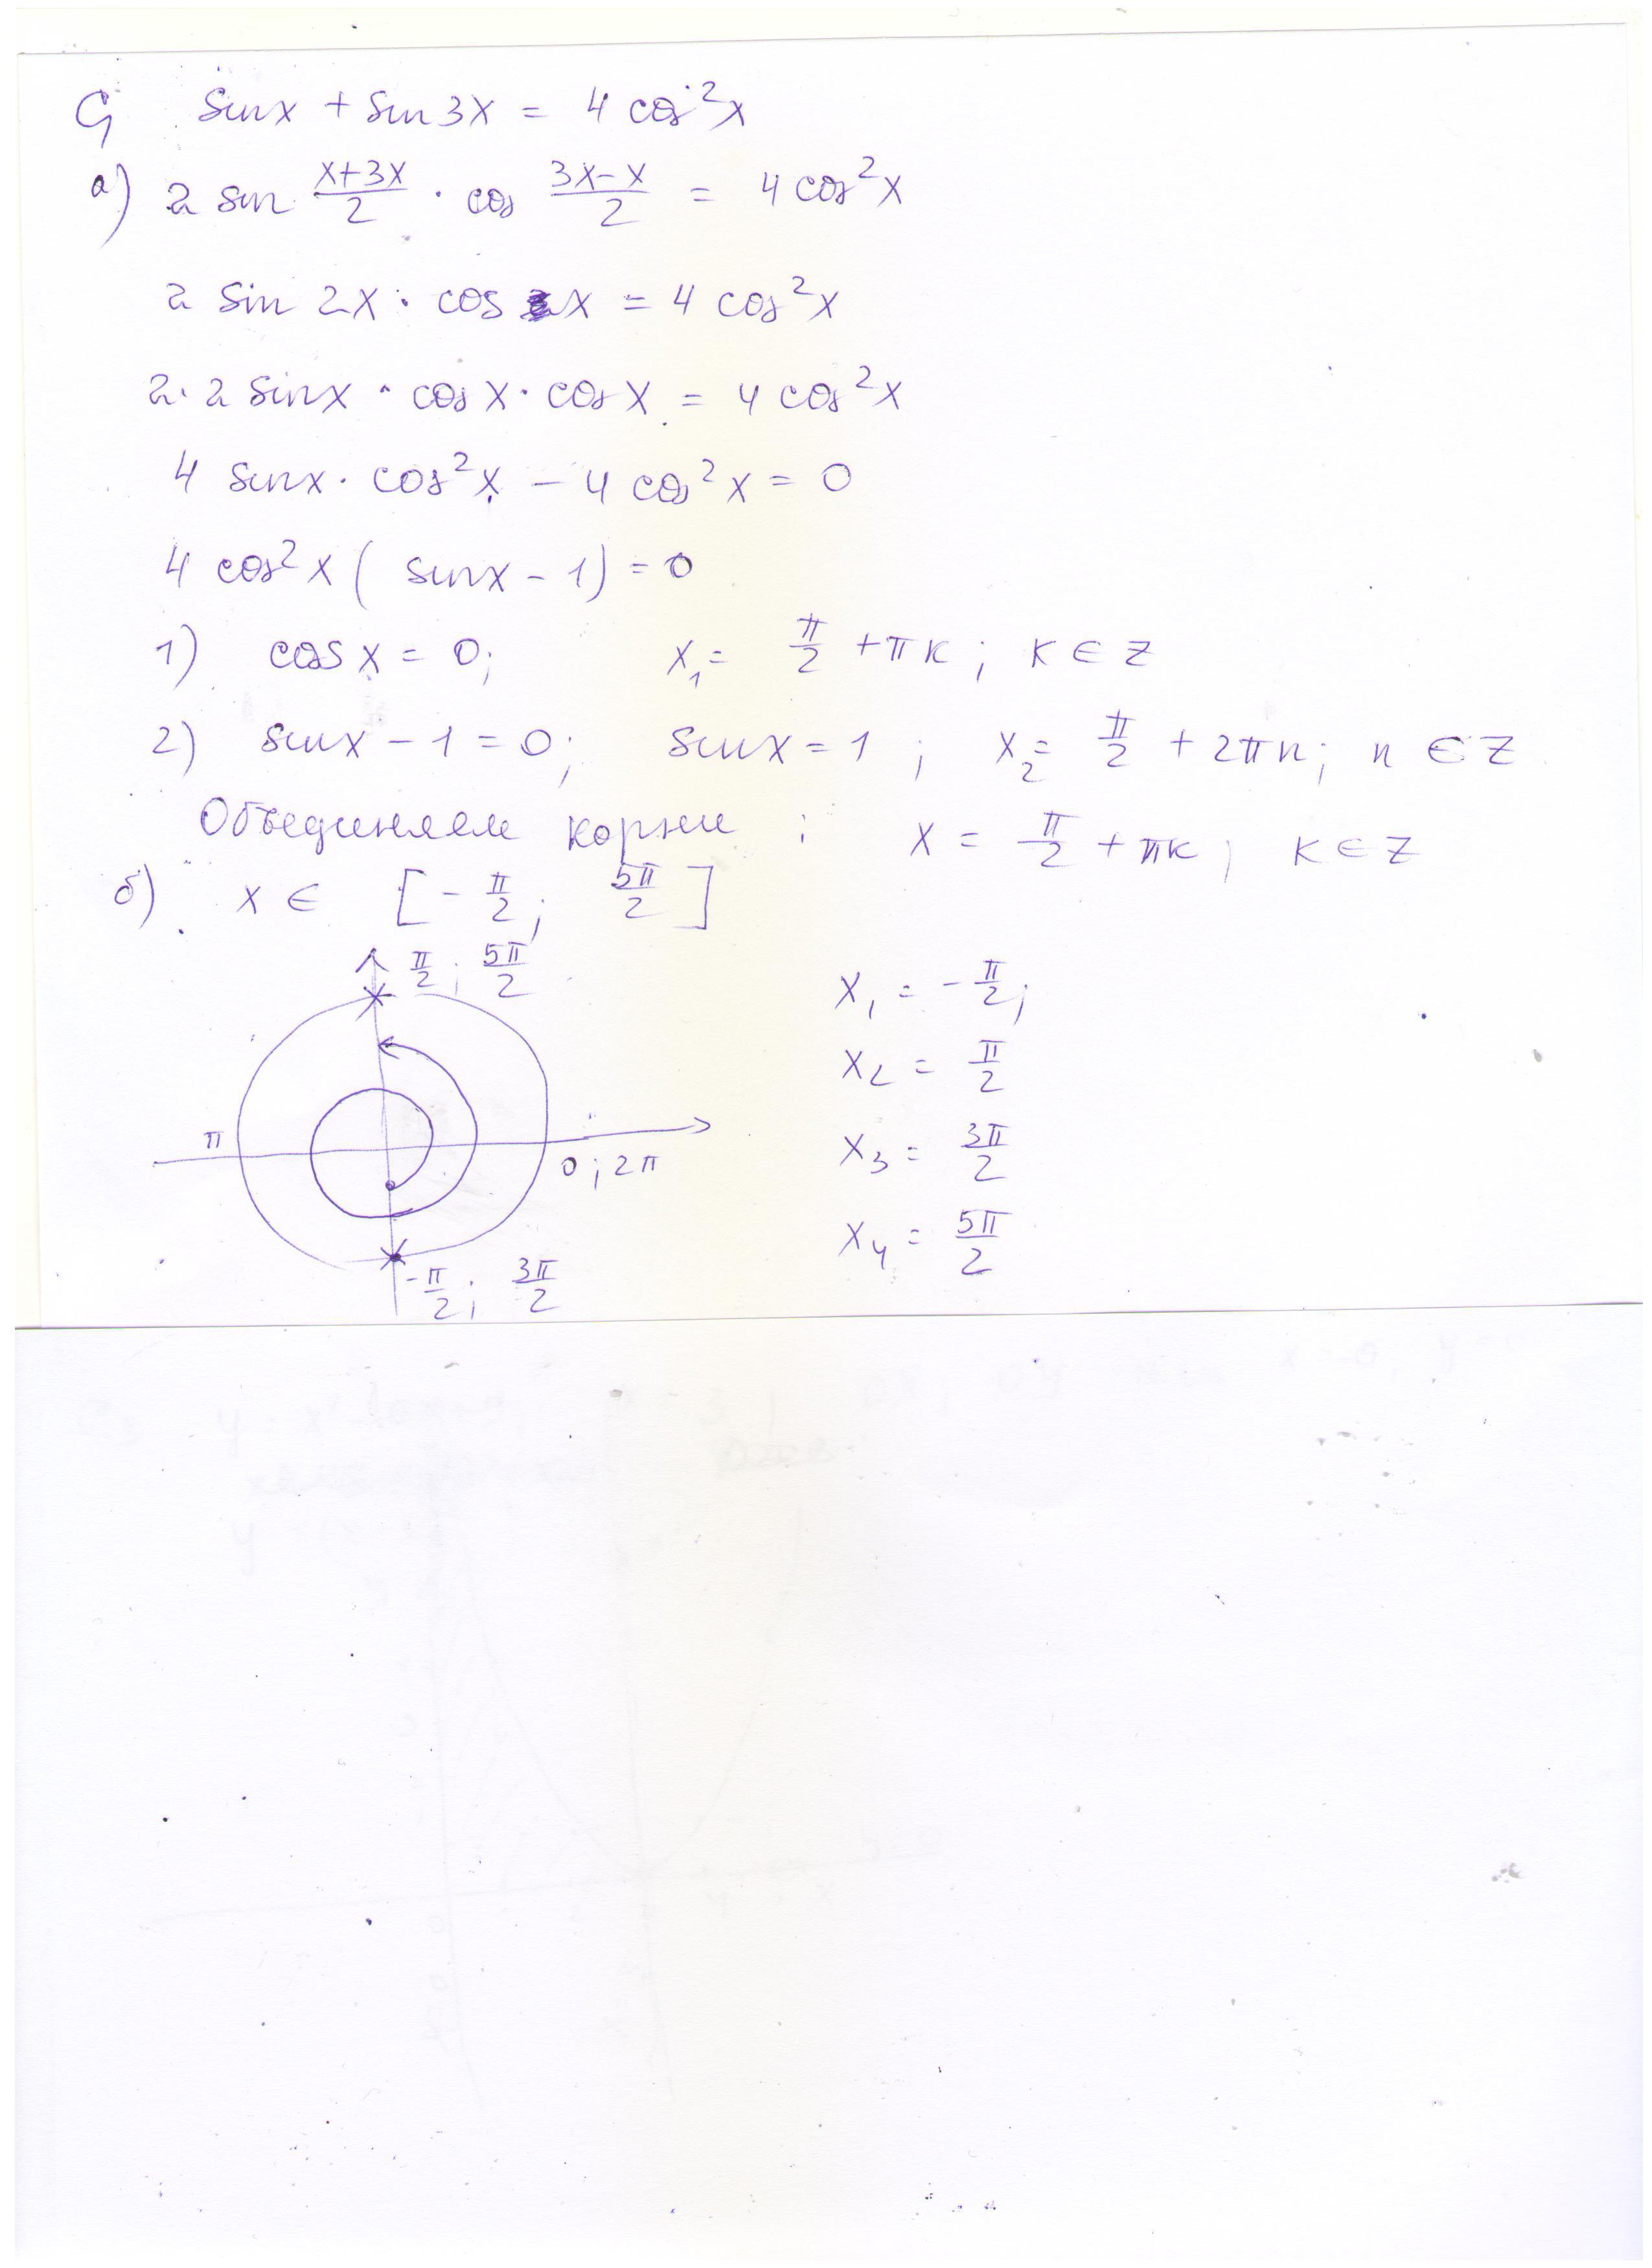 C₁ sinx + sin3x = 4 cos²x
а) 2 sin (x+3x)/2 · cos (3x-x)/2 = 4 cos²x
2 sin 2x · cos x = 4 cos²x
2·2 sinx · cos x · cos x = 4 cos²x
4 sinx · cos²x - 4 cos²x = 0
4 cos²x ( sinx - 1) = 0
1) cos x = 0; x₁ = π/2 + πк; к ∈ Z
2) sinx - 1 = 0; sinx = 1; x₂ = π/2 + 2πn; n ∈ Z
Объединяем корни: x = π/2 + πк; к ∈ Z
б) x ∈ [-π/2; 5π/2]
π/2; 5π/2
π
0; 2π
-π/2; 3π/2
x₁ = -π/2;
x₂ = π/2
x₃ = 3π/2
x₄ = 5π/2